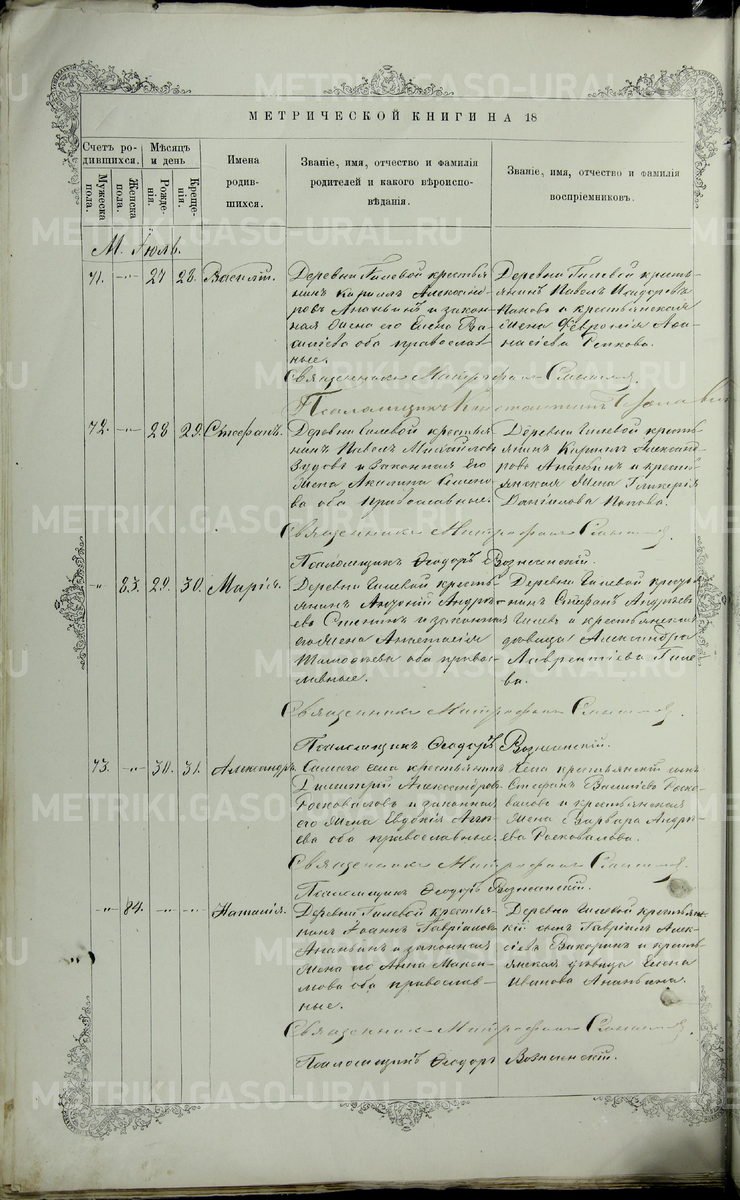 METRIKI.GASO-URAL.RU
МЕТРИЧЕСКОЙ КНИГИ НА 18
Счетъ родившихся.
Мужеска пола.
Женска пола.
Мѣсяцъ и день
Рожденія.
Крещенія.
Имена родившихся.
Званіе, имя, отчество и фамилія родителей и какого вѣроисповѣданія.
Званіе, имя, отчество и фамилія воспріемниковъ.
М. Іюль.
71. -"- 27 28. Василій.
Деревни Гилевой крестья
нинъ Кириллъ Александ
ровъ Ананьинъ и закон
ная жена его Елена Ва
сильева оба православ
ные.
Деревни Гилевой кресть
янинъ Павелъ
и крестьянская
жена Февронія Аѳа
насіева
Священникъ Митрофанъ
Псаломщикъ Константинъ
72. -"- 28 29. Стефанъ.
Деревни Гилевой крестья
нинъ Павелъ Михайловъ
Зудовъ и законная его
жена Акилина
ва оба православные.
Деревни Гилевой кресть
янинъ Кириллъ Александ
ровъ Ананьинъ и кресть
янская жена Гликерія
Даніилова Попова.
Священникъ Митрофанъ
Псаломщикъ Ѳеодоръ Вознесенскій.
" 83. 29. 30. Марія.
Деревни Гилевой кресть
янинъ Андре
евъ и законная
его жена Анастасія
Тимоѳеева оба правос
лавные.
Деревни Гилевой кресть
нинъ Стефанъ Андреевъ
Гилевъ и крестьянская
дѣвица Александра
Лаврентіева Гиле
ва.
Священникъ Митрофанъ
Псаломщикъ Ѳеодоръ Вознесенскій.
73. -"- 30. 31. Александръ.
Самаго села крестьянинъ
Димитрій Александровъ
Росковаловъ и законная
его жена Евдокія
ева оба православные.
Села крестьянскій сынъ
Стефанъ Роско
валовъ и крестьянская
жена Варвара Андре
ева Росковалова.
Священникъ Митрофанъ
Псаломщикъ Ѳеодоръ Вознесенскій.
" 84. -"- -"- Наталія.
Деревни Гилевой крестья
нинъ Іоаннъ Гавріиловъ
Ананьинъ и законная
жена его Анна Макси
мова оба православ
ные.
Деревни Гилевой крестьянс
кій сынъ Гавріилъ Алек
сіевъ и кресть
янская дѣвица Елена
Иванова Ананьина.
Священникъ Митрофанъ
Псаломщикъ Ѳеодоръ Вознесенскій.